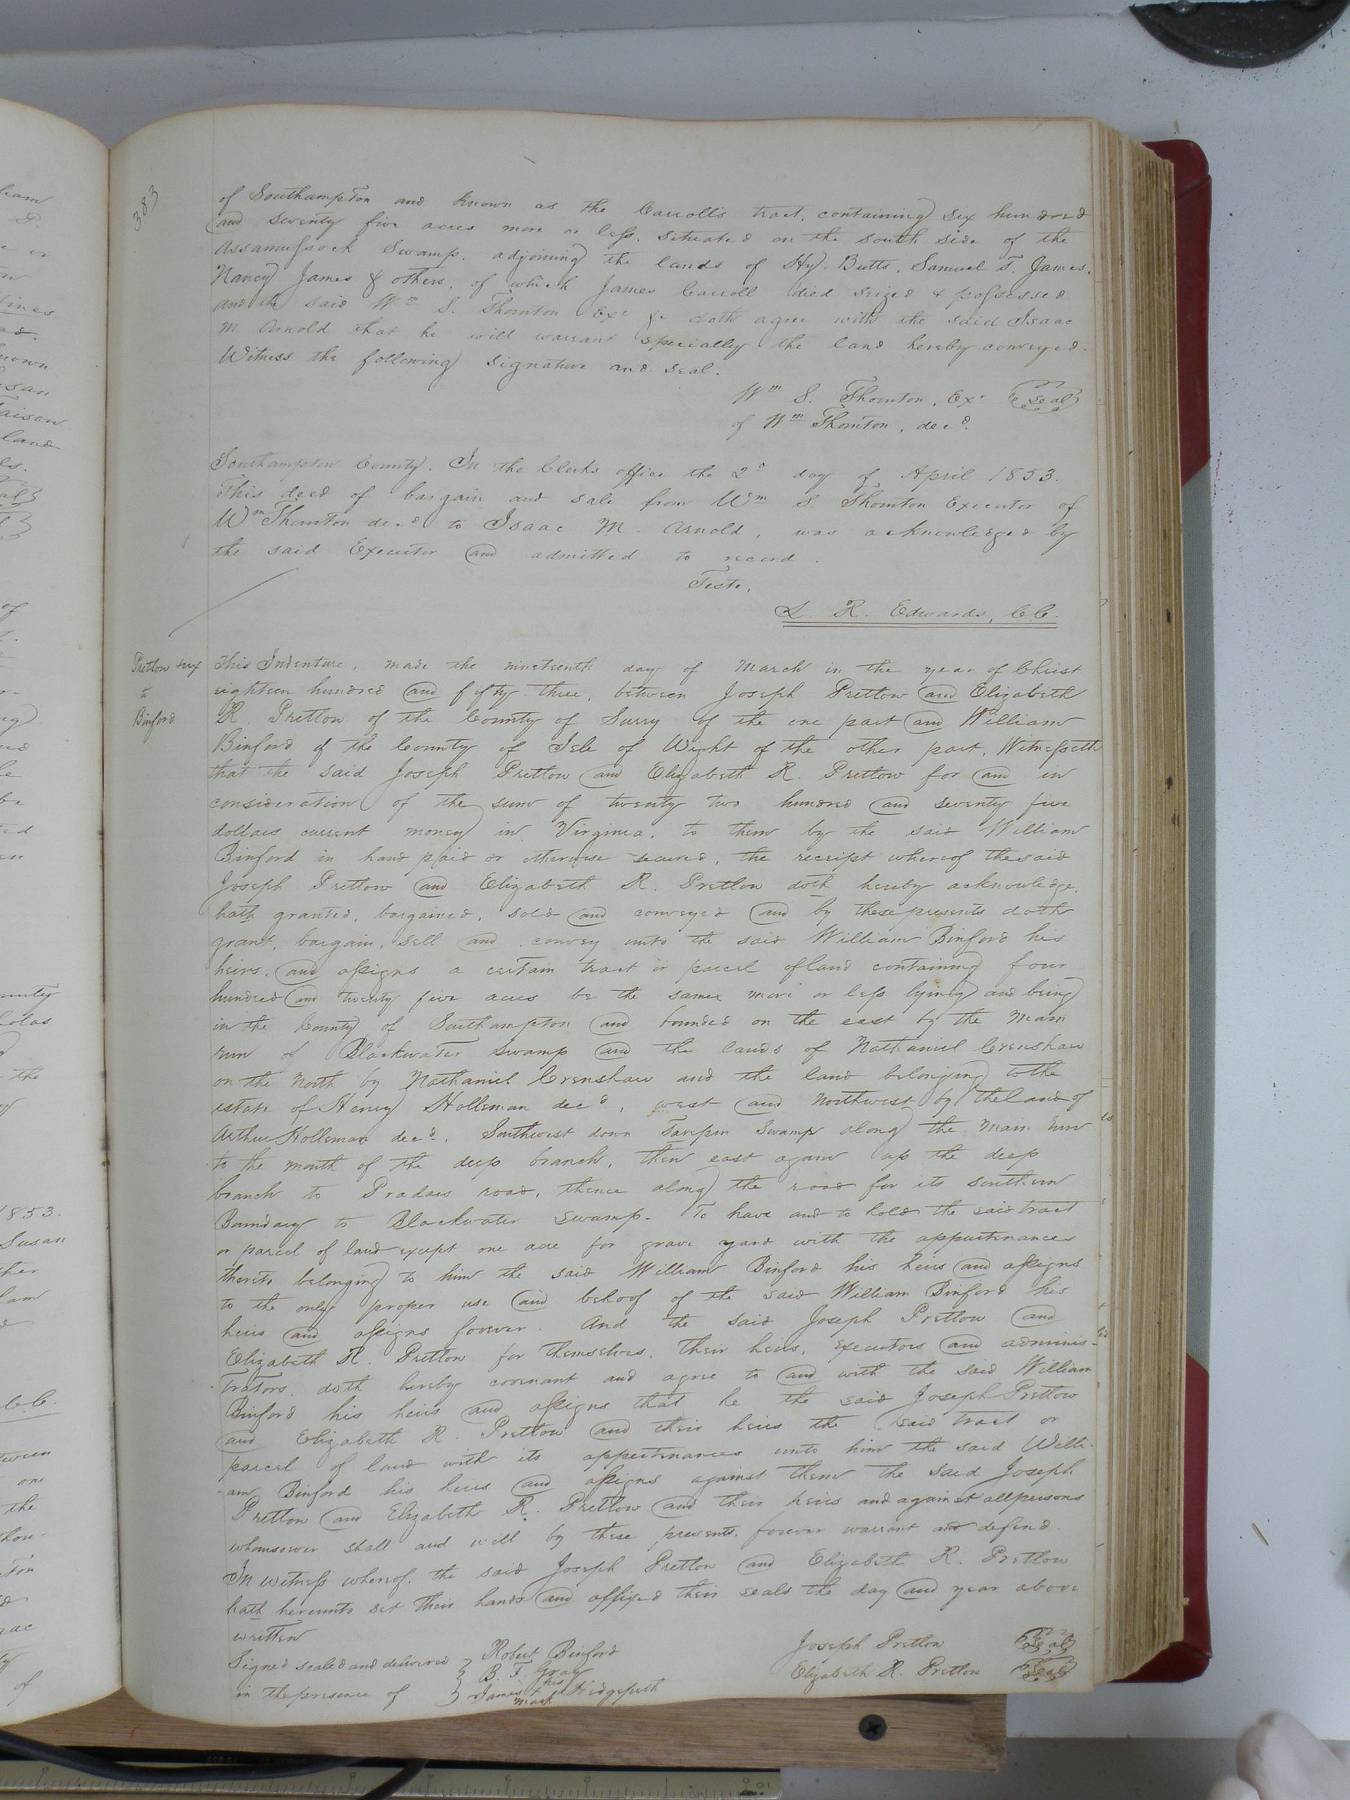 383
of Southampton and known as the Carrolls tract, containing six hundred
and seventy five acres more or less, situated on the south side of the
Assamussock Swamp, adjoining the lands of Hy. Butts, Samuel T. James,
Nancy James & others, of which James Carroll died seized & possessed
and the said Wm S. Thornton Exr &c doth agree with the said Isaac
M Arnold that he will warrant specially the land hereby conveyed.
Witness the following signature and seal.
Wm S. Thornton, Exr Seal
of Wm Thornton, decd.
Southampton County. In the Clerks office the 2d day of April 1853.
This deed of bargain and sale from Wm S Thornton Executor of
Wm Thornton decd to Isaac M. Arnold, was acknowledged by
the said Executor and admitted to record.
Teste,
L. R. Edwards, C.C.
Pretlow & ux
to
Binford
This Indenture, made the nineteenth day of March in the year of Christ
eighteen hundred and fifty-three, between Joseph Pretlow and Elizabeth
R. Pretlow of the County of Surry of the one part and William
Binford of the County of Isle of Wight of the other part, Witnesseth
that the said Joseph Pretlow and Elizabeth R. Pretlow for and in
consideration of the sum of twenty two hundred and seventy five
dollars current money in Virginia, to them by the said William
Binford in hand paid or otherwise secured, the receipt whereof the said
Joseph Pretlow and Elizabeth R. Pretlow doth hereby acknowledge,
hath granted, bargained, sold and conveyed and by these presents doth
grant, bargain, sell and convey unto the said William Binford his
heirs, and assigns a certain tract or parcel of land containing four
hundred and twenty five acres be the same more or less lying and being
in the County of Southampton and bounded on the east by the main
run of Blackwater Swamp and the lands of Nathaniel Crenshaw
on the North by Nathaniel Crenshaw and the land belonging to the
estate of Henry Holleman decd, west and Northwest by the land of
Arthur Holleman decd, Southwest down Swamp along the main run
to the mouth of the deep branch, then east again up the deep
branch to road, thence along the road for its southern
Boundary to Blackwater Swamp. To have and to hold the said tract
or parcel of land except one acre for grave yard with the appurtenances
thereto belonging to him the said William Binford his heirs and assigns
to the only proper use and behoof of the said William Binford his
heirs and assigns forever. And the said Joseph Pretlow and
Elizabeth R. Pretlow for themselves, their heirs, executors and adminis-
trators, doth hereby covenant and agree to and with the said William
Binford his heirs and assigns that he the said Joseph Pretlow
and Elizabeth R. Pretlow and their heirs the said tract or
parcel of land with its appurtenances unto him the said Willi-
am Binford his heirs and assigns against them the said Joseph
Pretlow and Elizabeth R. Pretlow and their heirs and against all persons
whomsoever shall and will by these presents, forever warrant and defend.
In witness whereof, the said Joseph Pretlow and Elizabeth R. Pretlow
hath hereunto set their hands and affixed their seals the day and year above
written
Signed sealed and delivered Robert Binford Joseph Pretlow Seal
B. T. Gray Elizabeth R. Pretlow Seal
in the presence of James his mark Hedgepeth